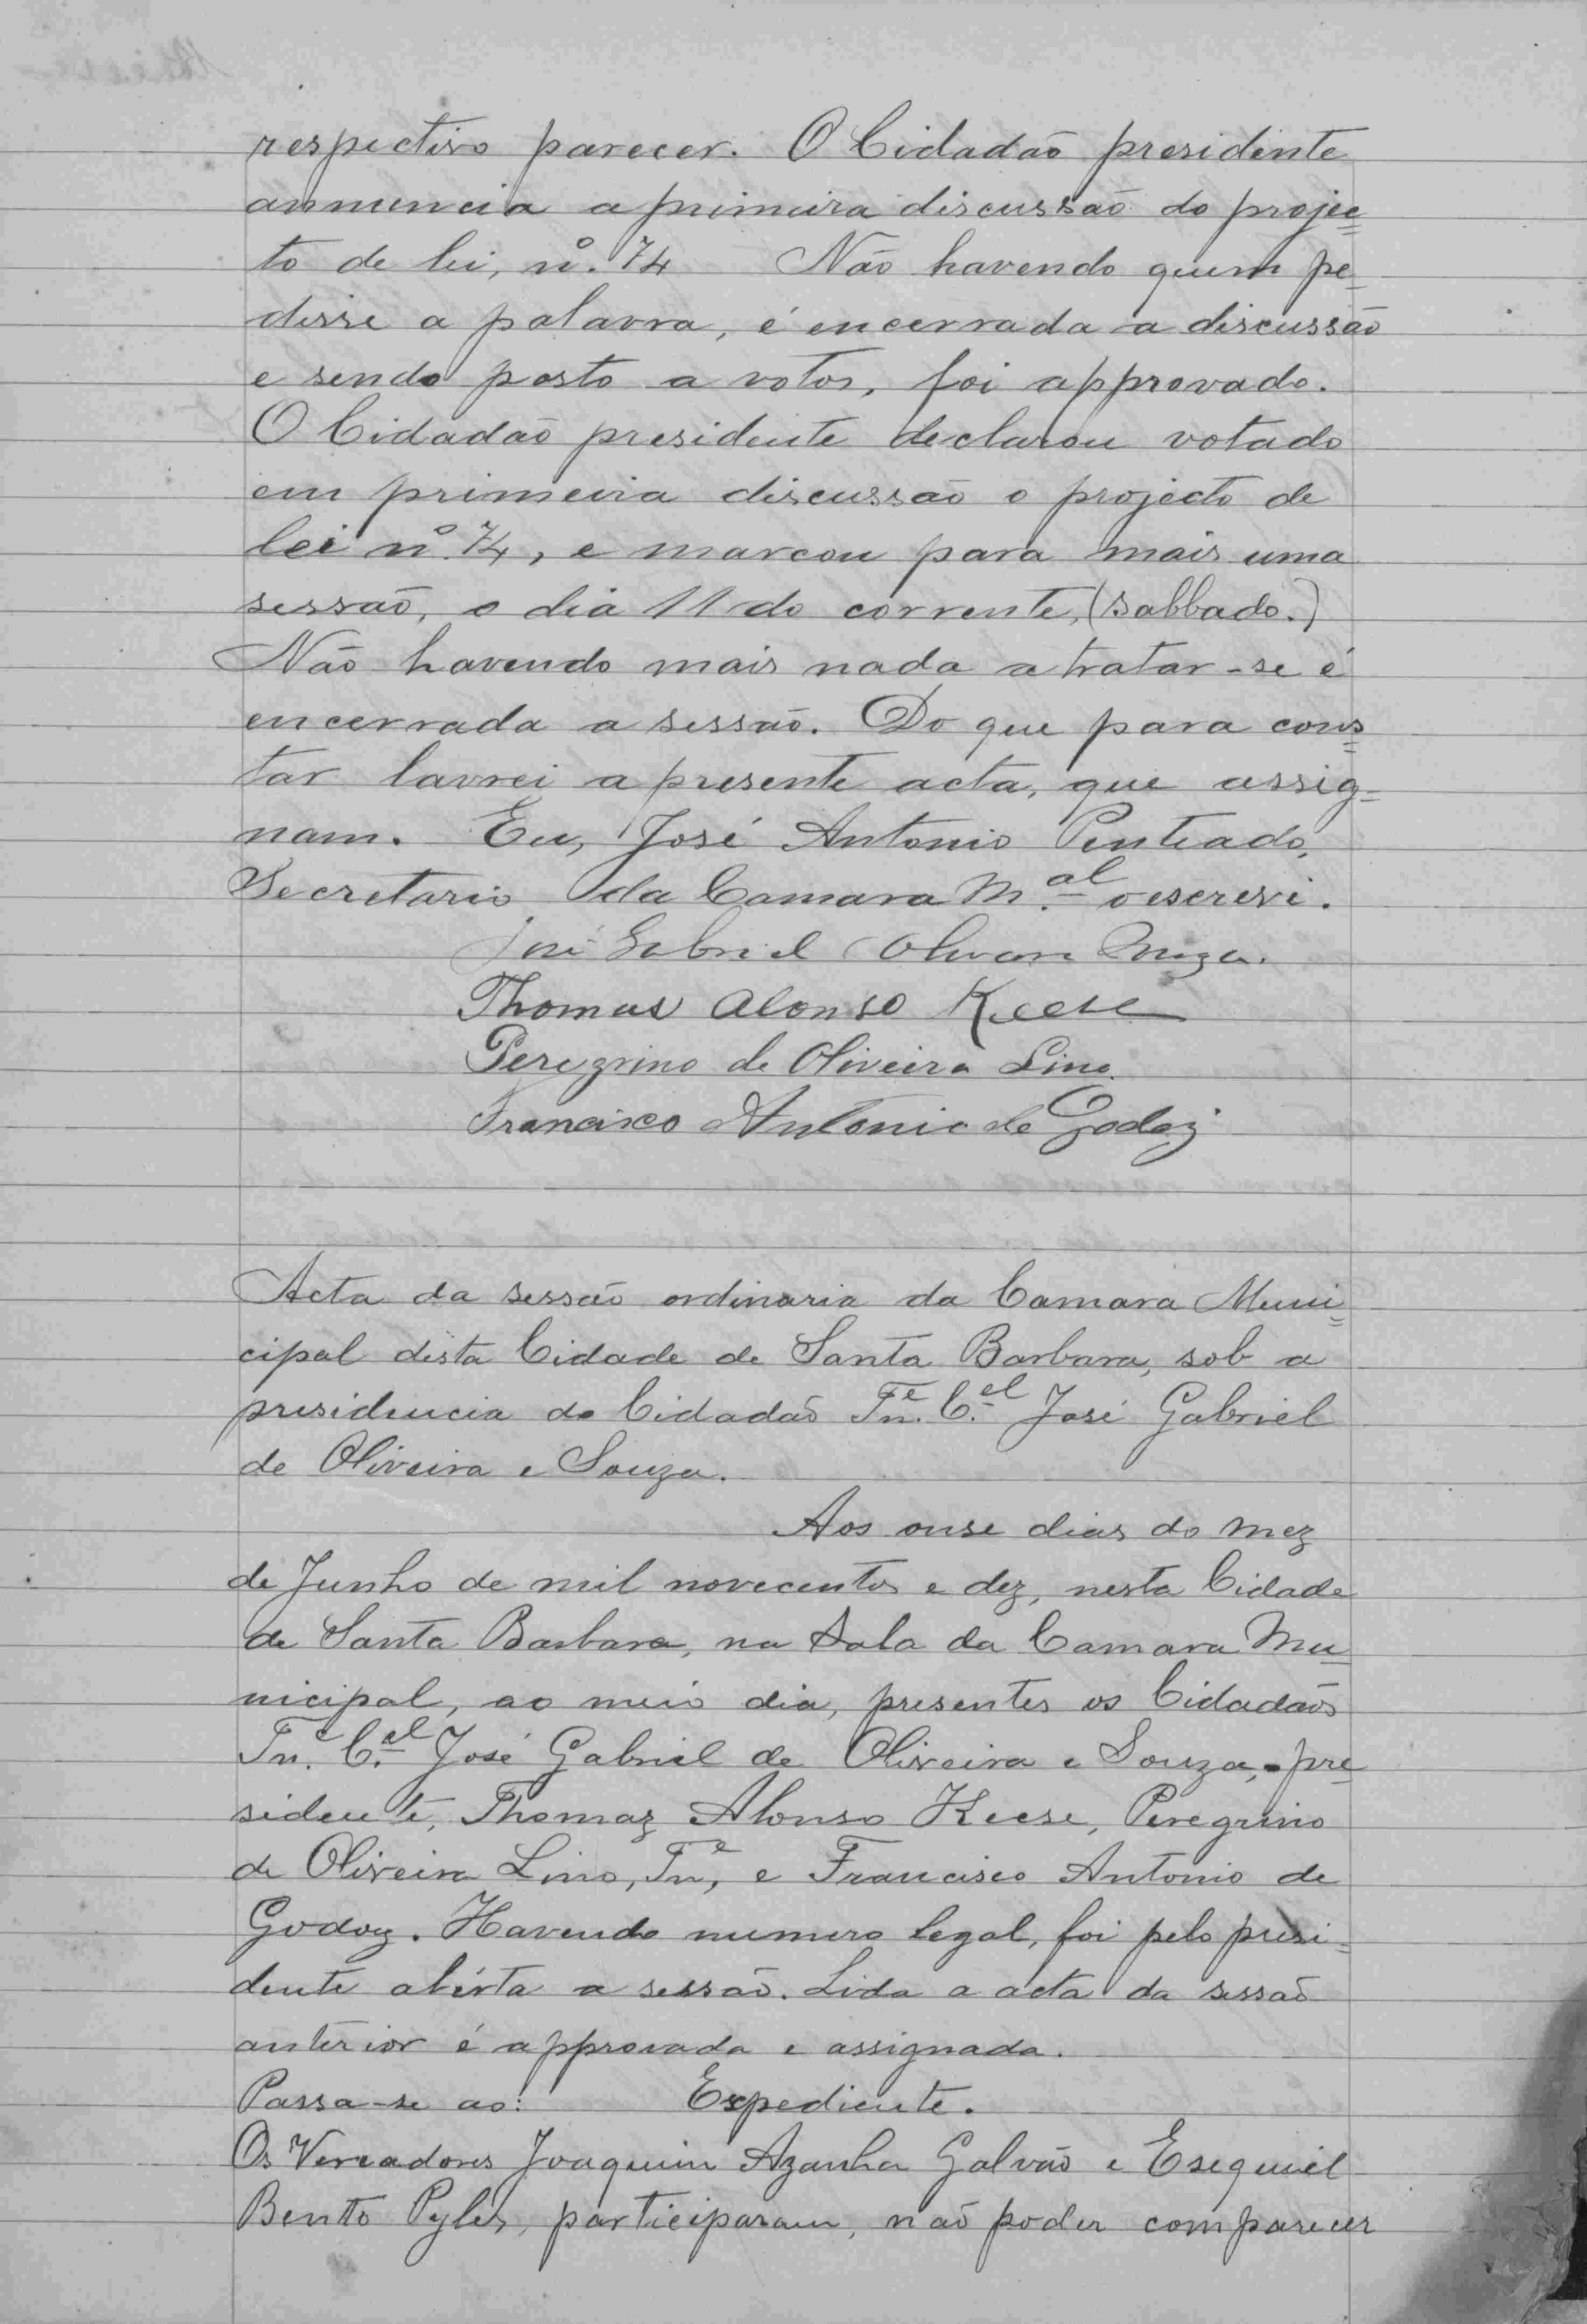 respectivo parecer. O Cidadão presidente
annuncia a primeira discussão do projec=
to de lei, nº. 74 Não havendo quem pe-
disse a palavra, é encerrada a discussão
e sendo posto a votos, foi approvado.
O Cidadão presidente declarou votado
em primeira discussão o projecto de
lei nº. 74, e marcou para mais uma
sessão, o dia 11 do corrente, (sabbado.)
Não havendo mais nada a tratar-se é
encerrada a sessão. Do que para cons=
tar lavrei a presente acta, que assig=
nam. Eu, José Antonio Penteado,
Secretario da Camara M.al o escrevi.
José Gabriel Oliveira Souza.
Thomas Alonso Keese
Peregrino de Oliveira Lino.
Francisco Antonio de Godoy
Acta da sessão ordinaria da Camara Muni=
cipal desta Cidade de Santa Barbara, sob a
presidencia do Cidadão Tn.e C.el José Gabriel
de Oliveira e Souza.
Aos onse dias do mez
de Junho de mil novecentos e dez, nesta Cidade
de Santa Barbara, na Sala da Camara Mu-
nicipal, ao meio dia, presentes os Cidadãos
Tn.e C.el José Gabriel de Oliveira e Souza, pre-
sidente, Thomaz Alonso Keese, Peregrino
de Oliveira Lino, Tn.e, e Francisco Antonio de
Godoy. Havendo numero legal, foi pelo presi=
dente abérta a sessão. Lida a acta da sessão
anterior é approvada e assignada.
Passa-se ao: Expediente.
Os Vereadores Joaquim Azanha Galvão e Esequiel
Bentto Pyles, participaram, não poder comparecer